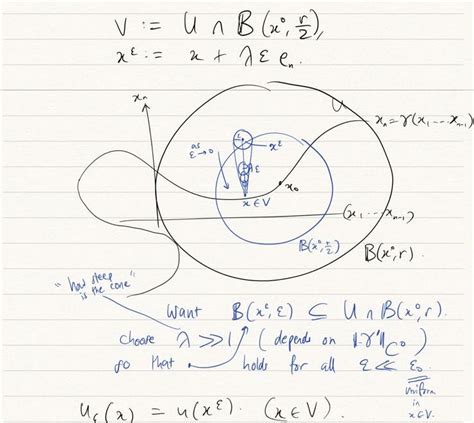 V := U ∩ B(x⁰, r/2),
x^ε := x + λ ε e_n.
x_n
U
x_n = γ(x_1 ... x_{n-1})
as ε→0
ε
x^ε
λε
x_0
x ∈ V
(x_1 ... x_{n-1})
B(x⁰, r/2)
B(x⁰, r).
"how steep
is the cone"
Want B(x^ε, ε) ⊆ U ∩ B(x⁰, r).
choose λ >> 1 (depends on ‖γ'‖_{C⁰})
so that holds for all ε << ε_0.
uniform
in
x ∈ V.
u_ε(x) = u(x^ε). (x ∈ V).